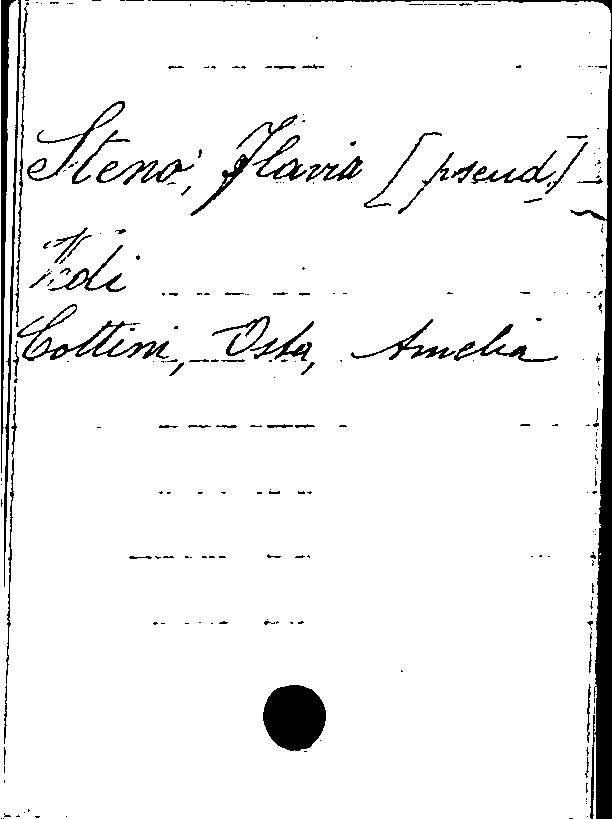 Steno, Flavia [pseud.]
Vedi
Cottini, Osta, Amelia